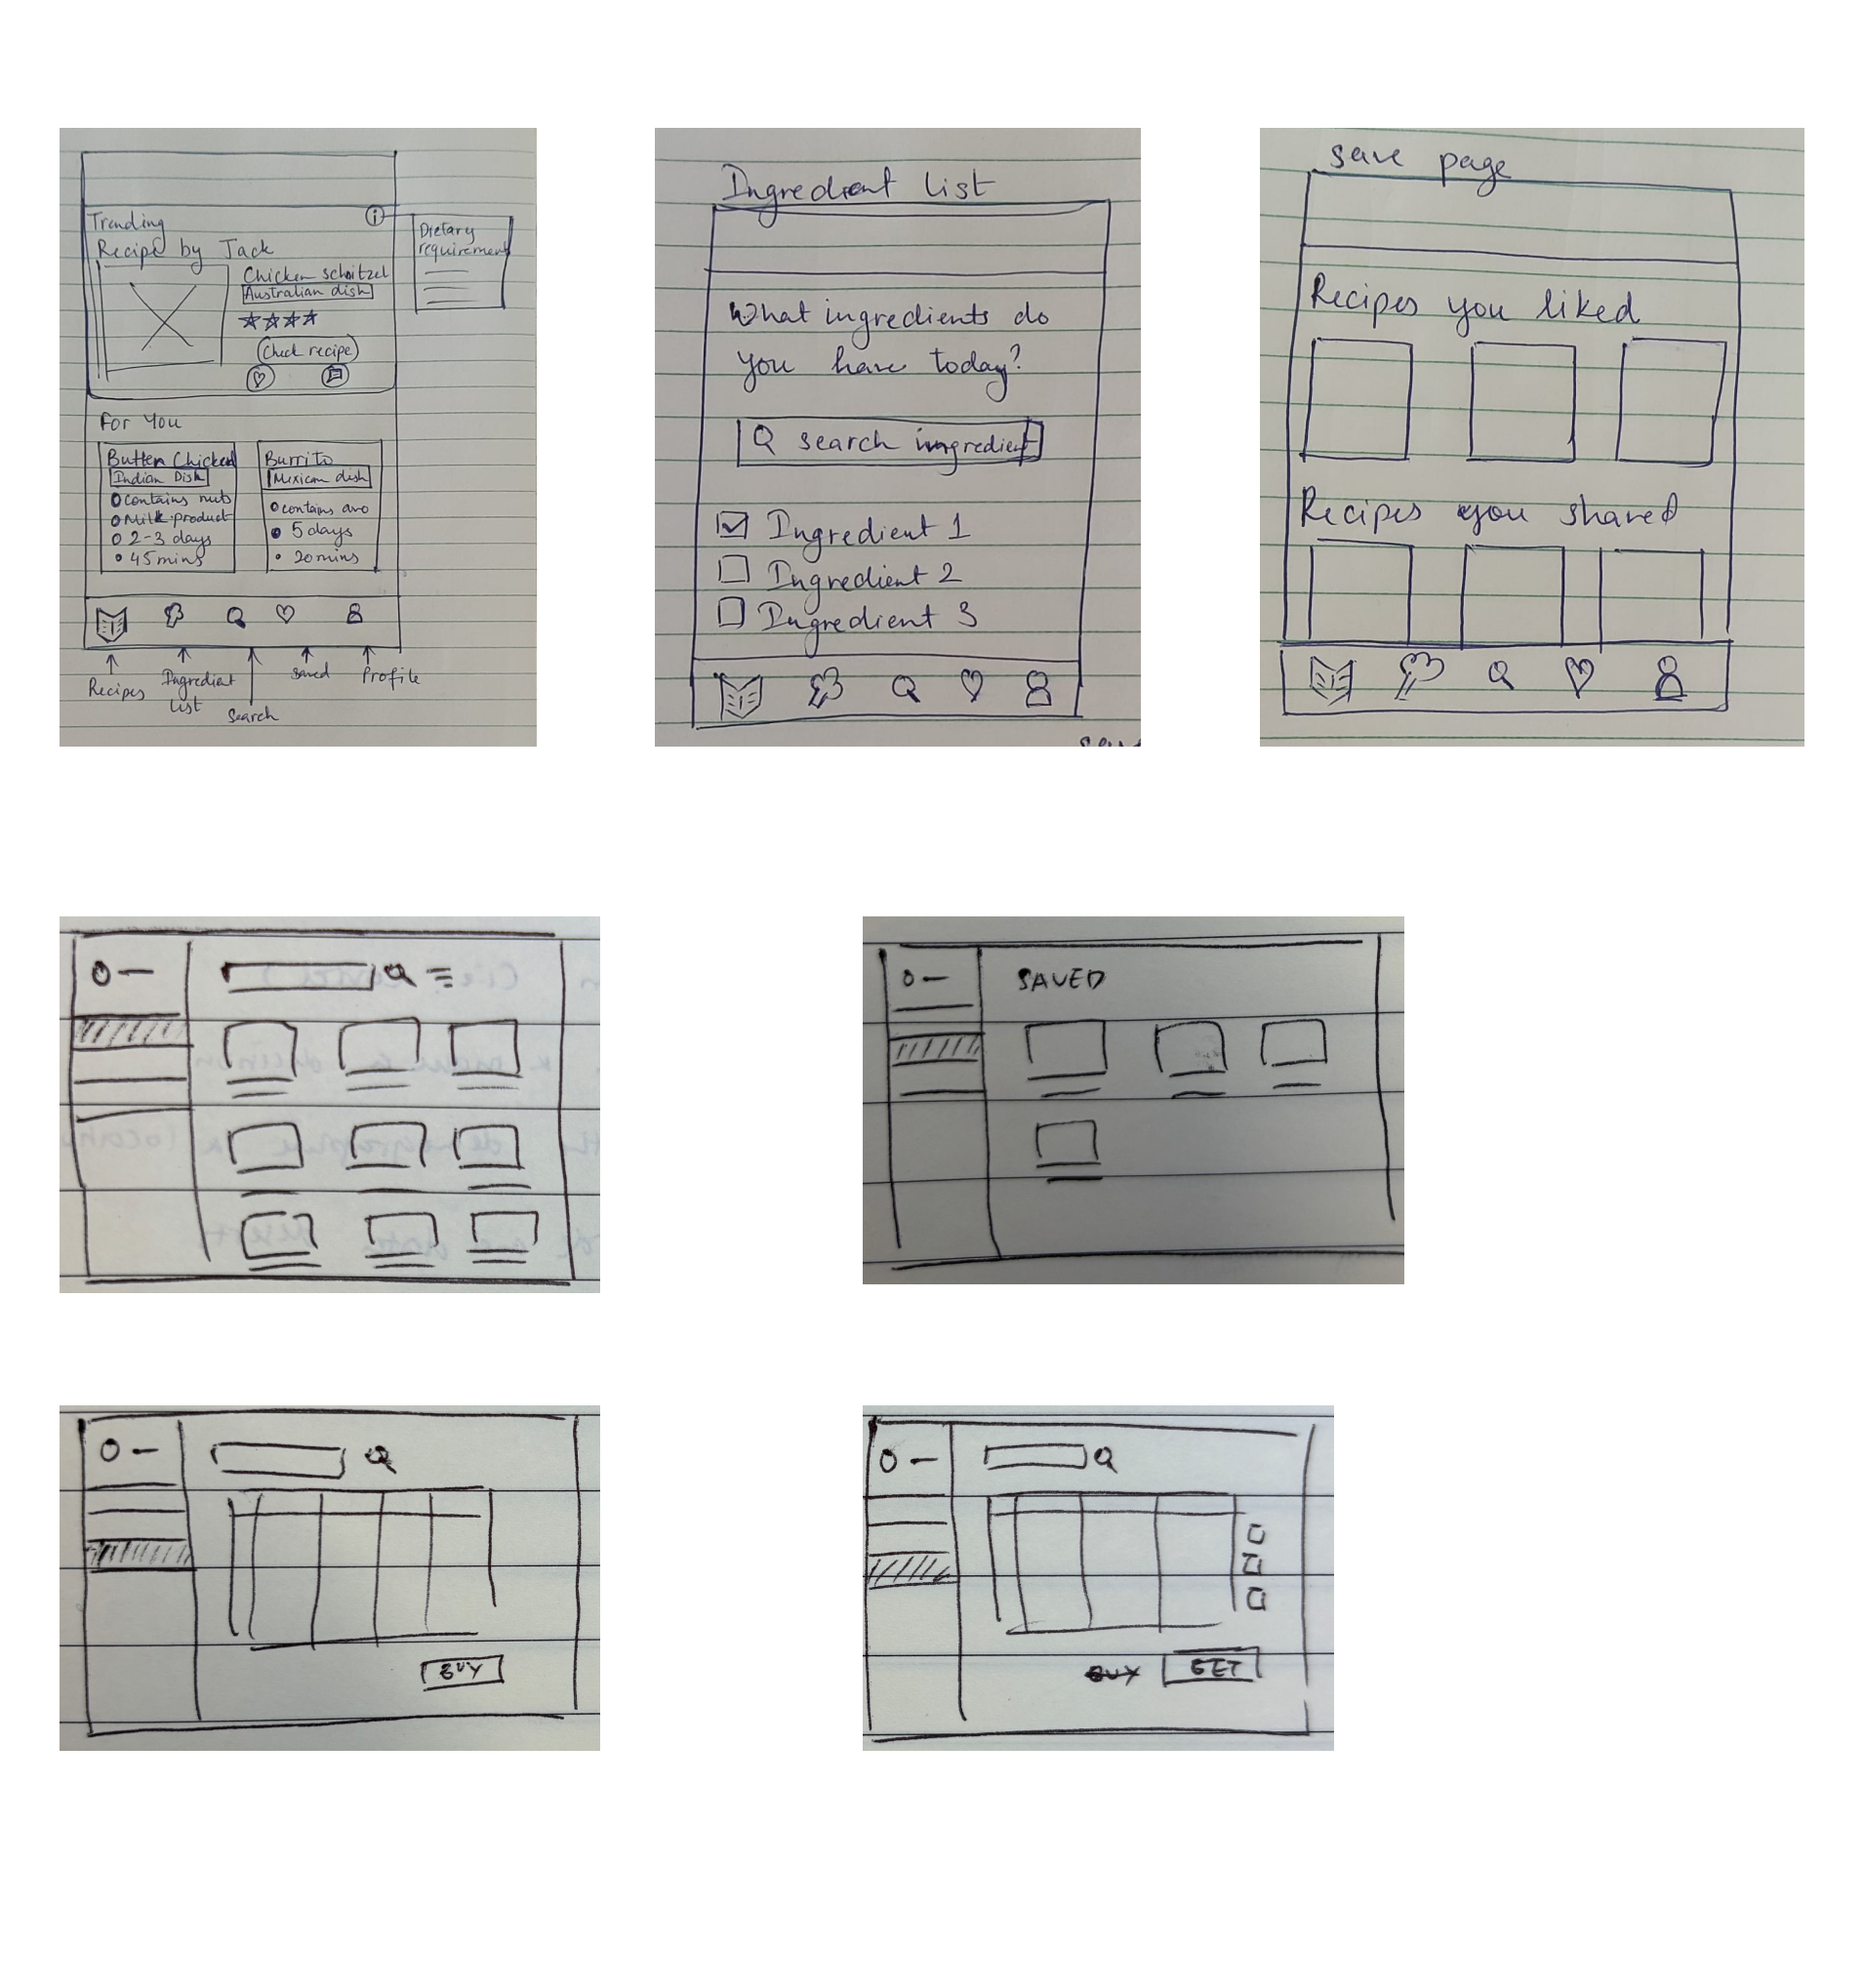 Trending
Recipe by Jack
Chicken schnitzel
Australian dish
Check recipe
Dietary
requirement
For You
Butter Chicken
Indian Dish
contains nuts
Milk product
2-3 days
45 mins
Burrito
Mexican dish
contains avo
5 days
20 mins
Recipes
Ingredient
list
Search
Saved
Profile
Ingredient list
What ingredients do
you have today?
search ingredient
Ingredient 1
Ingredient 2
Ingredient 3
save page
Recipes you liked
Recipes you shared
SAVED
BUY
BUY GET